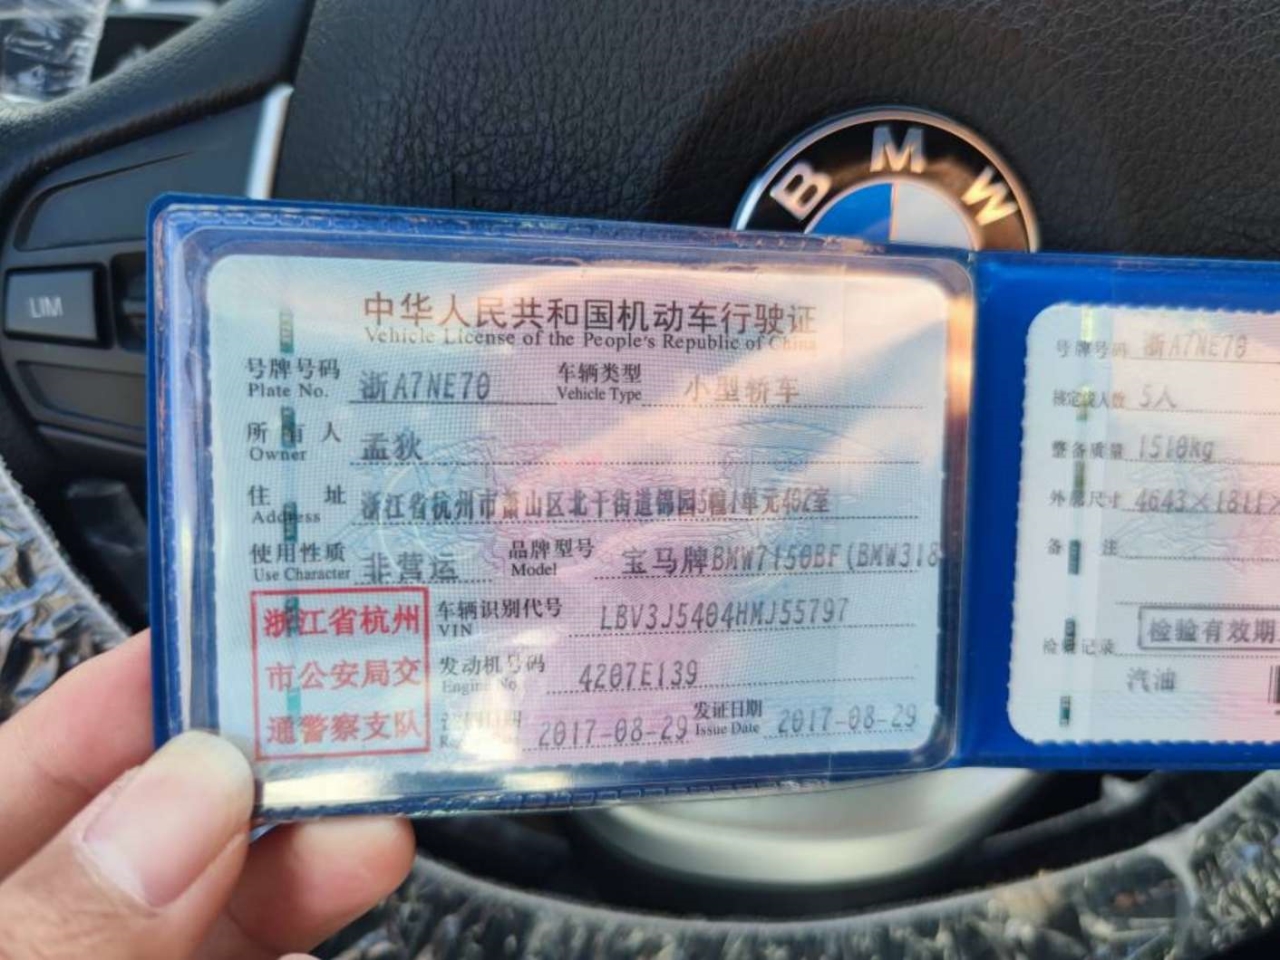 BMW
LIM
中华人民共和国机动车行驶证
Vehicle License of the People's Republic of China
号牌号码 浙A7NE70 车辆类型 小型轿车
Plate No. Vehicle Type
所有人 孟狄
Owner
住址 浙江省杭州市萧山区北干街道锦园5幢1单元402室
Address
使用性质 非营运 品牌型号 宝马牌BMW7150BF(BMW318
Use Character Model
浙江省杭州
市公安局交
通警察支队
车辆识别代号 LBV3J5404HMJ55797
VIN
发动机号码 4207E139
Engine No.
2017-08-29 发证日期 2017-08-29
Issue Date
号牌号码 浙A7NE70
核定载人数 5人
整备质量 1510kg
外廓尺寸 4643×1811×
备注
检验有效期
检验记录
汽油